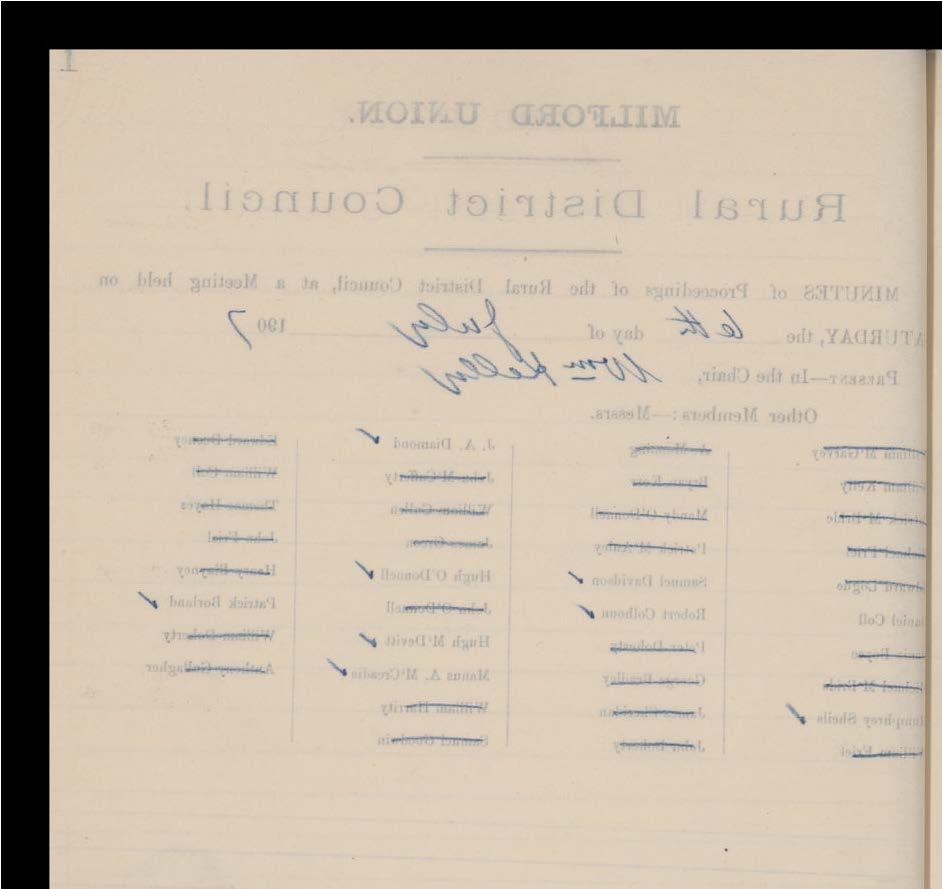 1
MILFORD UNION.
Rural District Council.
MINUTES of Proceedings of the Rural District Council, at a Meeting held on
ATURDAY, the 6th day of July 1907
PRESENT—In the Chair, Wm Kelly
Other Members:—Messrs.
illiam McGarvey
illiam Kelly
McBride
Friel
Logue
aniel Coll
Boyce
McBride
umphrey Sheils
illiam Friel
A Manning
Bryan Kerr
Mandy O'Donnell
Patrick
Samuel Davidson
Robert Colhoun
Peter Doherty
George Bradley
James Sheridan
John Doherty
J. A. Diamond
John McCafferty
William Cullen
James Green
Hugh O'Donnell
John O'Donnell
Hugh McDevitt
Manus A.
William Harrity
Samuel Goodwin
Edward
William Coll
Thomas Hayes
John Friel
Henry Blayney
Patrick Borland
William Doherty
Anthony Gallagher